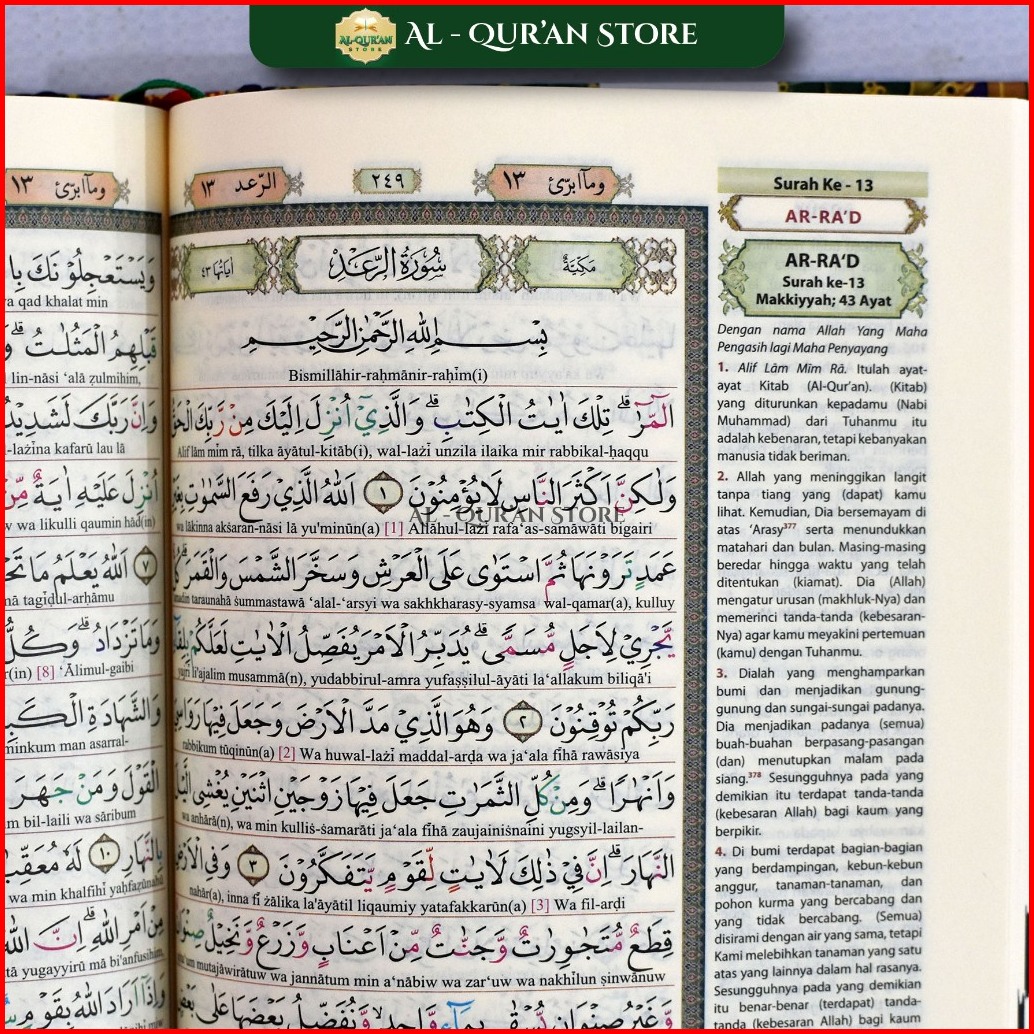 AL-QUR'AN STORE
AL - QUR'AN STORE
وما ابرئ ١٣
٢٤٩
الرعد ١٣
Surah Ke - 13
AR-RA'D
مكية
سورة الرعد
اياتها ٤٣
AR-RA'D
Surah ke-13
Makkiyyah; 43 Ayat
بسم الله الرحمن الرحيم
Bismillāhir-raḥmānir-raḥīm(i)
الۤمّۤرٰ ۗ تِلْكَ اٰيٰتُ الْكِتٰبِ ۗ وَالَّذِيْٓ اُنْزِلَ اِلَيْكَ مِنْ رَّبِّكَ الْحَقُّ
Alif lām mīm rā, tilka āyātul-kitāb(i), wal-lażī unzila ilaika mir rabbikal-ḥaqqu
وَلٰكِنَّ اَكْثَرَ النَّاسِ لَا يُؤْمِنُوْنَ ١ اَللّٰهُ الَّذِيْ رَفَعَ السَّمٰوٰتِ بِغَيْرِ
wa lākinna akṡaran-nāsi lā yu'minūn(a) [1] Allāhul-lażī rafa'as-samāwāti bigairi
AL-QUR'AN STORE
عَمَدٍ تَرَوْنَهَا ثُمَّ اسْتَوٰى عَلَى الْعَرْشِ وَسَخَّرَ الشَّمْسَ وَالْقَمَرَ ۗ كُلٌّ
'amadin taraunahā ṡummastawā 'alal-'arsyi wa sakhkharasy-syamsa wal-qamar(a), kulluy
يَّجْرِيْ لِاَجَلٍ مُّسَمًّى ۗ يُدَبِّرُ الْاَمْرَ يُفَصِّلُ الْاٰيٰتِ لَعَلَّكُمْ بِلِقَاۤءِ
yajrī li'ajalim musammā(n), yudabbirul-amra yufaṣṣilul-āyāti la'allakum biliqā'i
رَبِّكُمْ تُوْقِنُوْنَ ٢ وَهُوَ الَّذِيْ مَدَّ الْاَرْضَ وَجَعَلَ فِيْهَا رَوَاسِيَ
rabbikum tūqinūn(a) [2] Wa huwal-lażī maddal-arḍa wa ja'ala fīhā rawāsiya
وَاَنْهٰرًا ۗ وَمِنْ كُلِّ الثَّمَرٰتِ جَعَلَ فِيْهَا زَوْجَيْنِ اثْنَيْنِ يُغْشِى الَّيْلَ
wa anhārā(n), wa min kulliṡ-ṡamarāti ja'ala fīhā zaujainiṡnaini yugsyil-lailan-
النَّهَارَ ۗ اِنَّ فِيْ ذٰلِكَ لَاٰيٰتٍ لِّقَوْمٍ يَّتَفَكَّرُوْنَ ٣ وَفِى الْاَرْضِ
nahār(a), inna fī żālika la'āyātil liqaumiy yatafakkarūn(a) [3] Wa fil-arḍi
قِطَعٌ مُّتَجٰوِرٰتٌ وَّجَنّٰتٌ مِّنْ اَعْنَابٍ وَّزَرْعٌ وَّنَخِيْلٌ صِنْوَانٌ
mutajāwirātuw wa jannātum min a'nābiw wa zar'uw wa nakhīlun ṣinwānuw
وَّغَيْرُ صِنْوَانٍ يُّسْقٰى بِمَاۤءٍ وَّاحِدٍ ۙ وَّنُفَضِّلُ بَعْضَهَا عَلٰى بَعْضٍ
Dengan nama Allah Yang Maha
Pengasih lagi Maha Penyayang
1. Alif Lām Mīm Rā. Itulah ayat-
ayat Kitab (Al-Qur'an). (Kitab)
yang diturunkan kepadamu (Nabi
Muhammad) dari Tuhanmu itu
adalah kebenaran, tetapi kebanyakan
manusia tidak beriman.
2. Allah yang meninggikan langit
tanpa tiang yang (dapat) kamu
lihat. Kemudian, Dia bersemayam di
atas 'Arasy377 serta menundukkan
matahari dan bulan. Masing-masing
beredar hingga waktu yang telah
ditentukan (kiamat). Dia (Allah)
mengatur urusan (makhluk-Nya) dan
memerinci tanda-tanda (kebesaran-
Nya) agar kamu meyakini pertemuan
(kamu) dengan Tuhanmu.
3. Dialah yang menghamparkan
bumi dan menjadikan gunung-
gunung dan sungai-sungai padanya.
Dia menjadikan padanya (semua)
buah-buahan berpasang-pasangan
(dan) menutupkan malam pada
siang.378 Sesungguhnya pada yang
demikian itu terdapat tanda-tanda
(kebesaran Allah) bagi kaum yang
berpikir.
4. Di bumi terdapat bagian-bagian
yang berdampingan, kebun-kebun
anggur, tanaman-tanaman, dan
pohon kurma yang bercabang dan
yang tidak bercabang. (Semua)
disirami dengan air yang sama, tetapi
Kami melebihkan tanaman yang satu
atas yang lainnya dalam hal rasanya.
Sesungguhnya pada yang demikian
itu benar-benar (terdapat) tanda-
tanda (kebesaran Allah) bagi kaum
وما ابرئ ١٣
وَيَسْتَعْجِلُوْنَكَ
qad khalat min
قَبْلِهِمُ الْمَثُلٰتُ ۗ
lin-nāsi 'alā ẓulmihim,
وَاِنَّ رَبَّكَ لَشَدِيْدُ
-lażīna kafarū lau lā
اُنْزِلَ عَلَيْهِ اٰيَةٌ مِّنْ
wa likulli qaumin hād(in)
٧ اَللّٰهُ يَعْلَمُ مَا
tagīḍul-arḥāmu
وَمَا تَزْدَادُ ۗ وَكُلُّ
[8] 'Ālimul-gaibi
وَالشَّهَادَةِ الْكَبِيْرُ
minkum man asarral-
الْقَوْلَ وَمَنْ جَهَرَ
bil-laili wa sāribum
بِالنَّهَارِ ١٠ لَهٗ مُعَقِّبٰتٌ
wa min khalfihī yaḥfaẓūnahū
مِنْ اَمْرِ اللّٰهِ ۗ اِنَّ اللّٰهَ
yugayyirū mā bi'anfusihim,
وَاِذَآ اَرَادَ اللّٰهُ بِقَوْمٍ